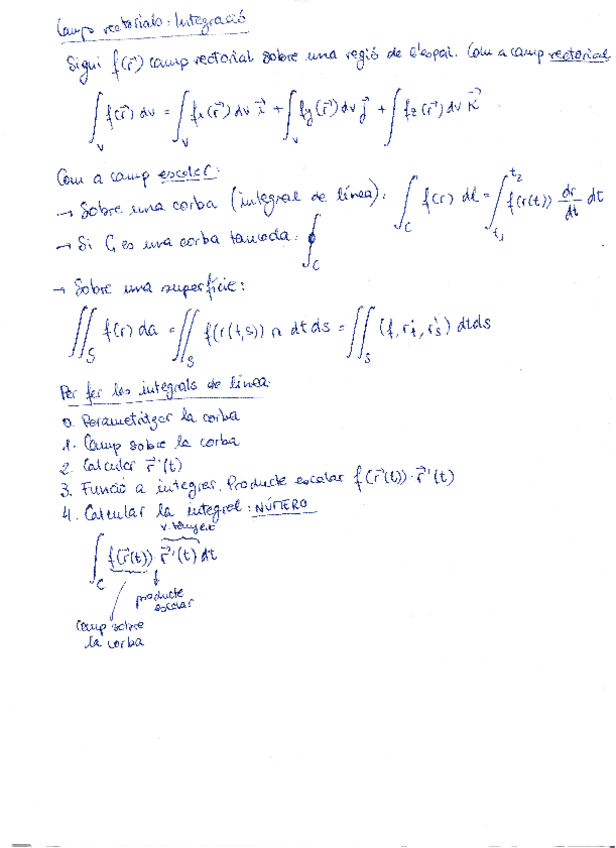 Camps vectorials: Integració
Sigui f(r⃗) camp vectorial sobre una regió de l'espai. Com a camp vectorial
∫_V f(r⃗) dv = ∫_V fx(r⃗) dv i⃗ + ∫_V fy(r⃗) dv j⃗ + ∫ fz(r⃗) dv k⃗
Com a camp escalar:
→ Sobre una corba (integral de línea): ∫_C f(r) dl = ∫_{t1}^{t2} f(r(t)) dr/dt dt
→ Si C és una corba tancada: ∮_C
→ Sobre una superfície:
∬_S f(r) da = ∬_S f(r(t,s)) n dt ds = ∬_S (f, r't, r's) dt ds
Per fer les integrals de línea:
0. Parametritzar la corba
1. Camp sobre la corba
2. Calcular r⃗'(t)
3. Funció a integrar. Producte escalar f(r⃗(t))·r⃗'(t)
4. Calcular la integral: NÚMERO
v. tangent
∫_C f(r⃗(t)) · r⃗'(t) dt
producte
escalar
Camp sobre
la corba